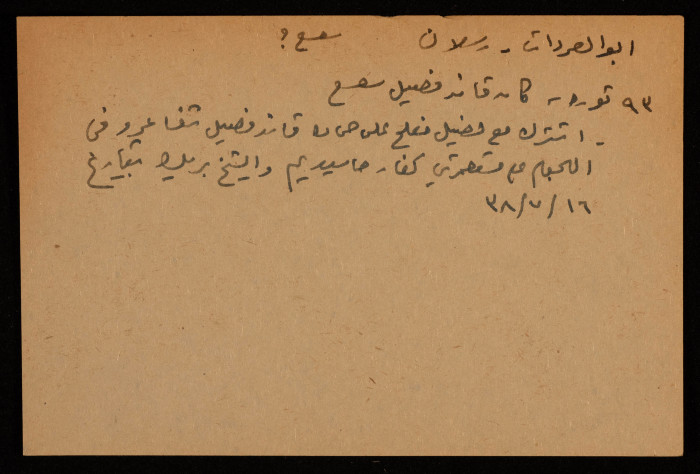 ابو العردات - رسلان سعسع ؟
٩٣ ثورة - كان قائد فصيل سعسع
- اشترك مع فصيل مفلح علي قائد فصيل شفا عمرو في
الهجوم على مستعمرتي كفار حاسيديم والشيخ بريك بتاريخ
١٦/٧/٣٨